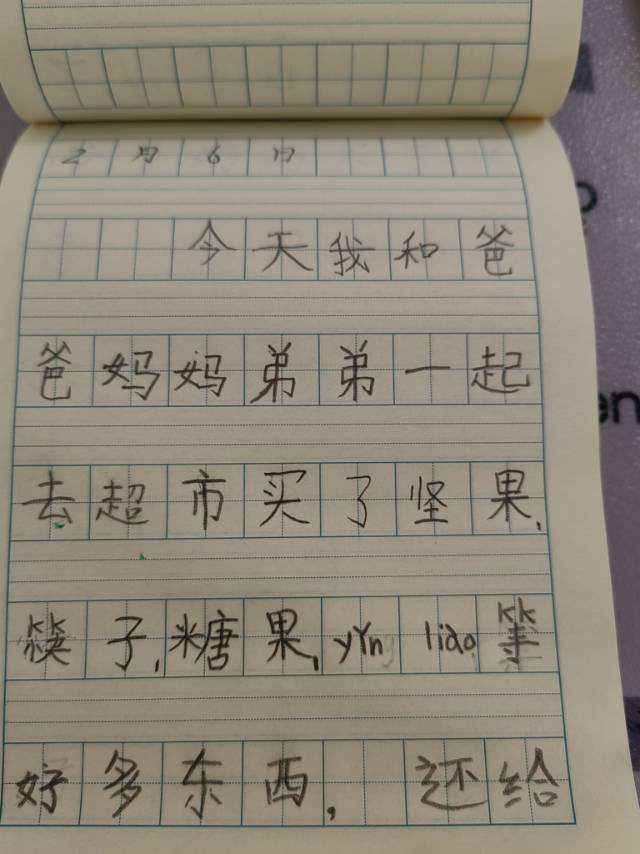 2月6日
今天我和爸
爸妈妈弟弟一起
去超市买了坚果,
筷子,糖果,yǐn liào 等
好多东西,还给
en